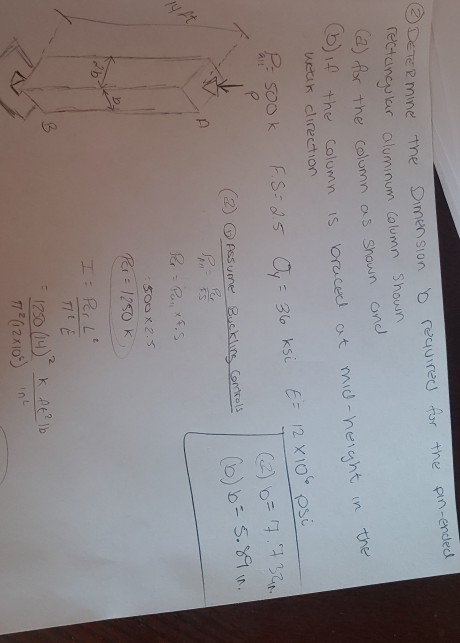 ② DETERMINE the Dimension b required for the pin-ended
rectangular aluminum column shown
(a) for the column as shown and
(b) if the column is braced at mid-height in the
weak direction
P all = 500 k F.S = 2.5 σy = 36 ksi E = 12 x 10⁶ psi
(a) b = 7.73 in.
(b) b = 5.89 in.
14 ft
P
A
2b
b
B
(a) ① Assume Buckling Controls
Pall = Pcr / FS
Pcr = Pall x F.S
= 500 x 2.5
Pcr = 1250 k
I = Pcr L² / π² E
= 1250 (14)² k ft² lb / π² (12x10⁶) in²